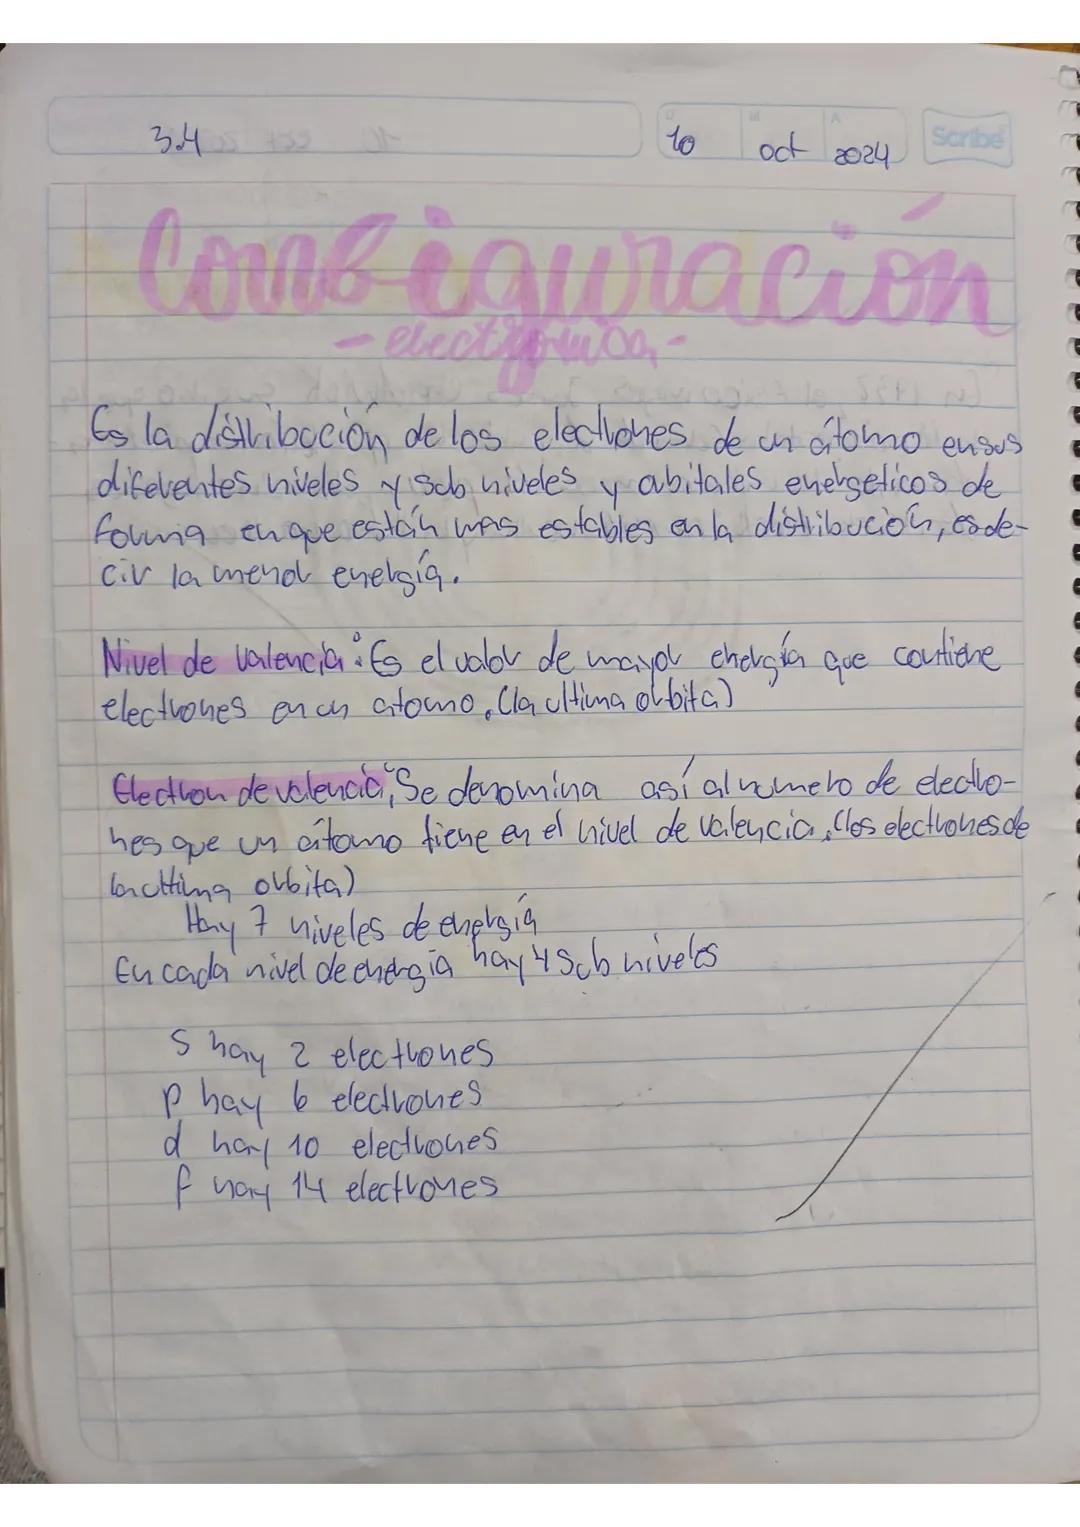 3.4
10 oct 2024 Scribe
Configuración
- electronica -
Es la distriboción de los electrones de un átomo en sus
diferentes niveles y sub niveles y orbitales energeticos de
forma en que están mas estables en la distribución, es de-
cir la menor energía.
Nivel de valencia: Es el valor de mayor energía que contiene
electrones en un atomo, (la ultima orbita)
Electron de valencia, Se denomina así al numero de electro-
nes que un átomo tiene en el nivel de valencia, (los electrones de
la ultima orbita)
Hay 7 niveles de energía
En cada nivel de energia hay 4 sub niveles
S hay 2 electrones
p hay 6 electrones
d hay 10 electrones
f hay 14 electrones